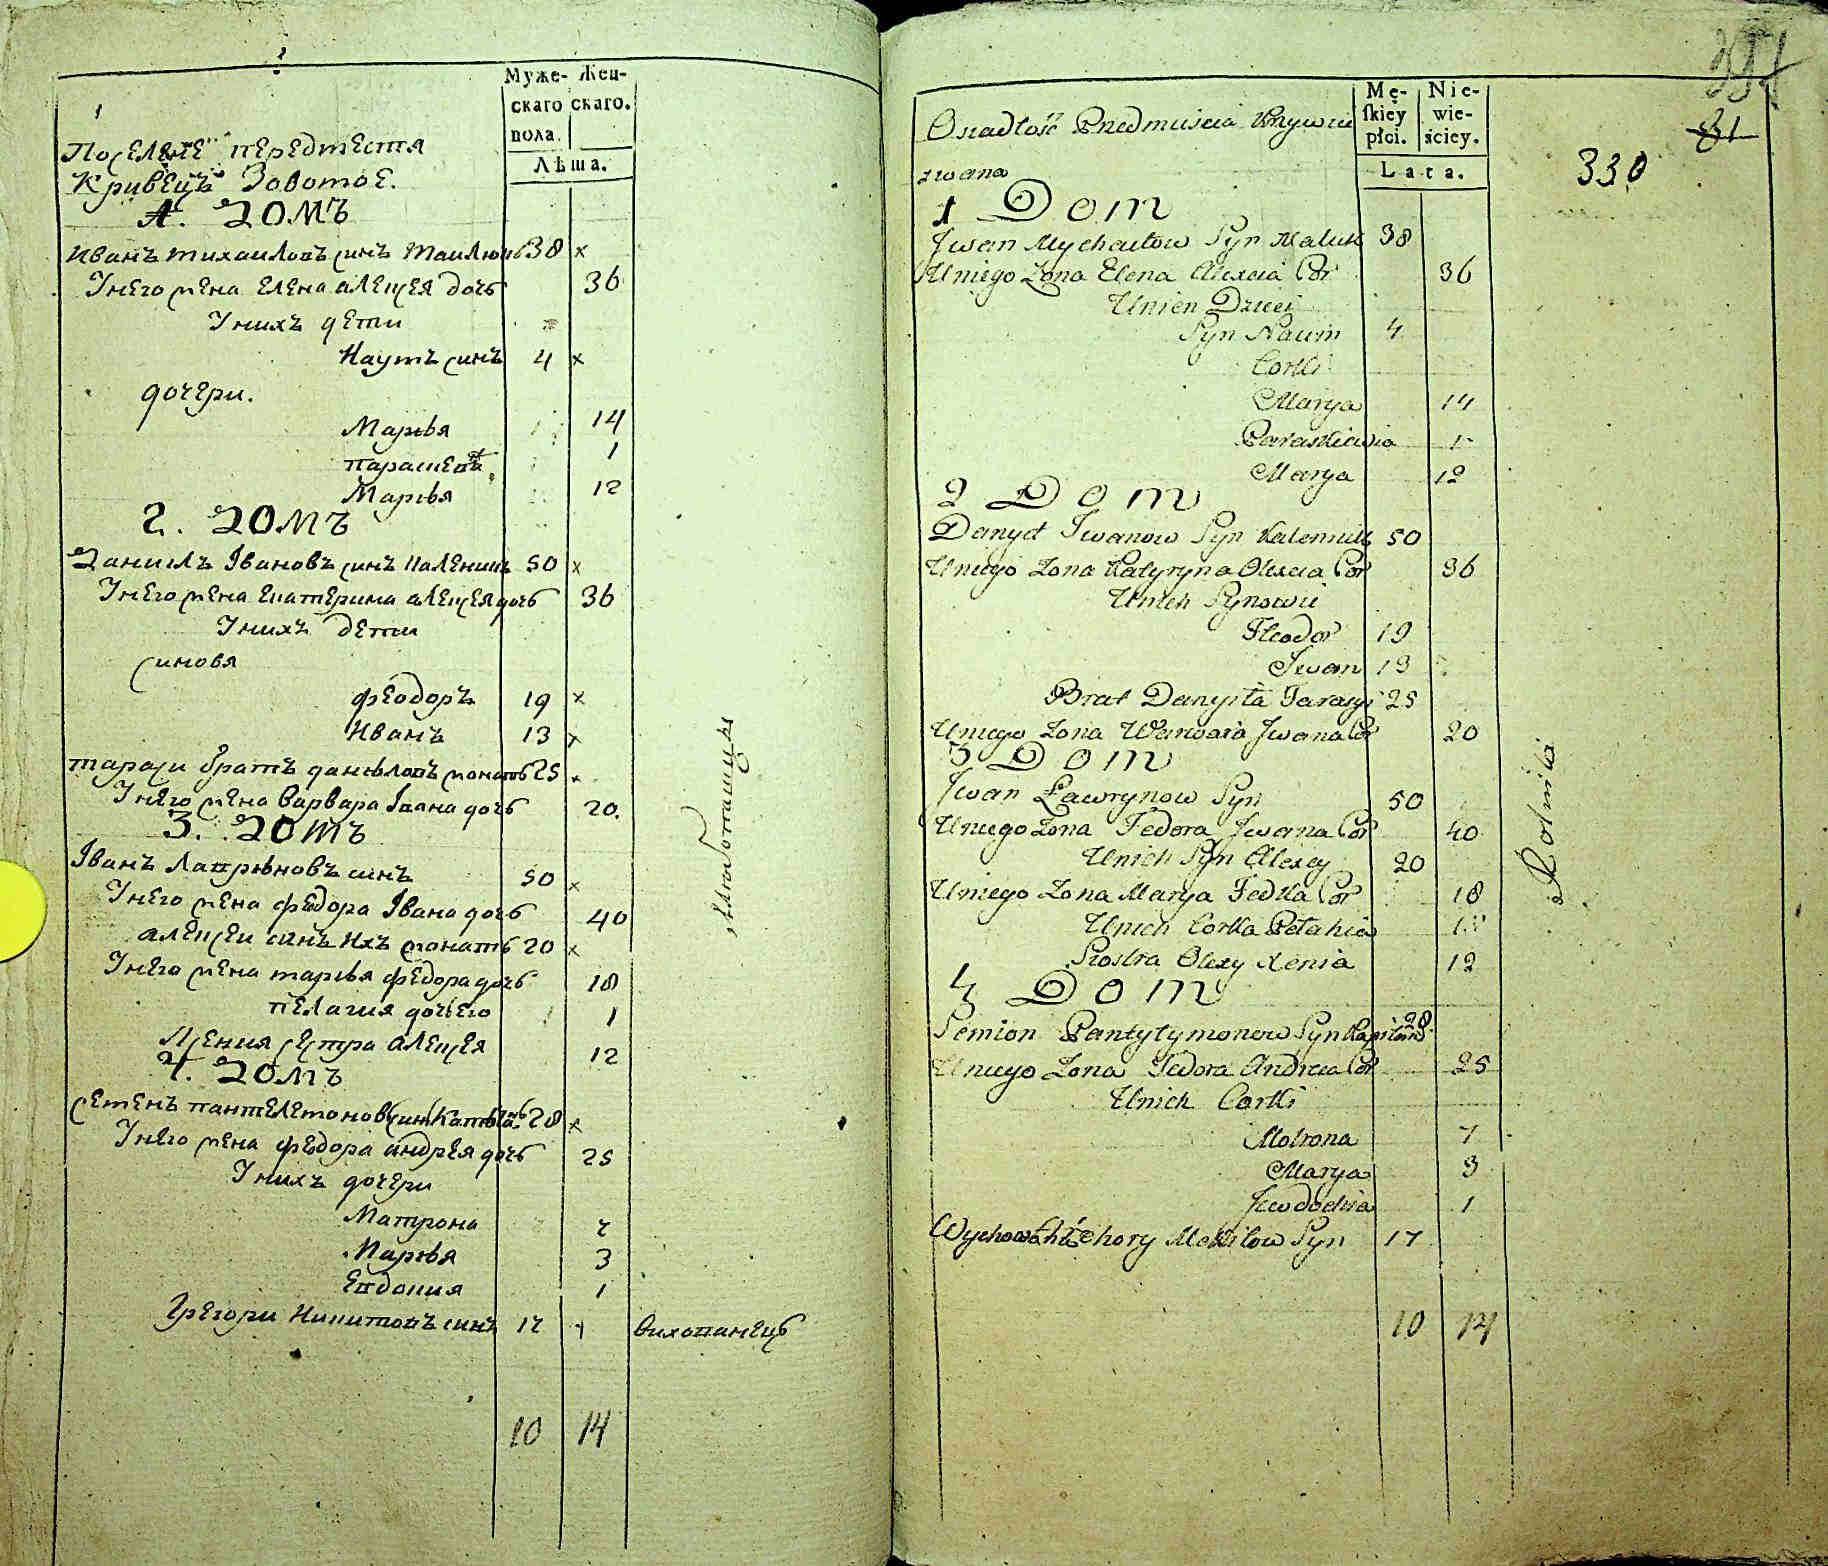 Муже- Жен-
скаго скаго.
пола.
Лѣта.
1
Поселение передместя
Кривецъ Золотое.
1. Домъ
Иванъ михаиловъ синъ 38 x
Унего жена Елена алеѯея дочь 36
Унихъ дети
Наумъ синъ 4 x
дочери.
Марья 14
парасцевя 1
Марья 12
2. Домъ
Данилъ Івановъ синъ 50 x
Унего жена Екатерина алеѯея дочь 36
Унихъ дети
синовя
феодоръ 19 x
Иванъ 13 x
тараси братъ даниловъ женатъ 25 x
Унего жена Варвара Івана дочь 20.
3. Домъ
Іванъ Лавриновъ синъ 50 x
Унего жена федора Івана дочь 40
алеѯеи синъ ихъ женатъ 20 x
Унего жена марья федора дочь 18
пелагия дочь его 1
Ѯения сестра алеѯея 12
4. Домъ
семенъ пантелемоновъ синъ 28 x
Унего жена федора андрея дочь 25
Унихъ дочери
Матрона 7
Марья 3
Евдокия 1
Грегори Никитовъ синъ 17
10 14
Mę- Nie-
skiey wie-
płci. ściey.
Lata.
330
81
Osiadłość Przedmiścia
1 Dom
Jwan Mychaiłow Syn Maluk 38
Uniego Zona Elena Alexeia Cor 36
Unich Dzieci
Syn Naum 4
Corki
Marya 14
Paraskiewia 1
Marya 12
2 Dom
Danyeł Jwanow Syn Kaleniuk 50
Uniego Zona Katyryna Olexeia Cor 36
Unich Synowie
Fteodor 19
Jwan 13
Brat Danyiła Tarasyi 25
Uniego Zona Warwara Jwana Cor 20
3 Dom
Jwan Ławrynow Syn 50
Uniego Zona Fedora Jwana Cor 40
Unich Syn Alexey 20
Uniego Zona Marya Fedka Cor 18
Unich Corka Pełahia 1
Siostra Olexy Xenia 12
4 Dom
Semion Pantylymonow Syn 28
Uniego Zona Fedora Andreia Cor 25
Unich Corki
Motrona 7
Marya 3
Jewdochia 1
Hrehory Mekitow Syn 17
10 14
Rolniki